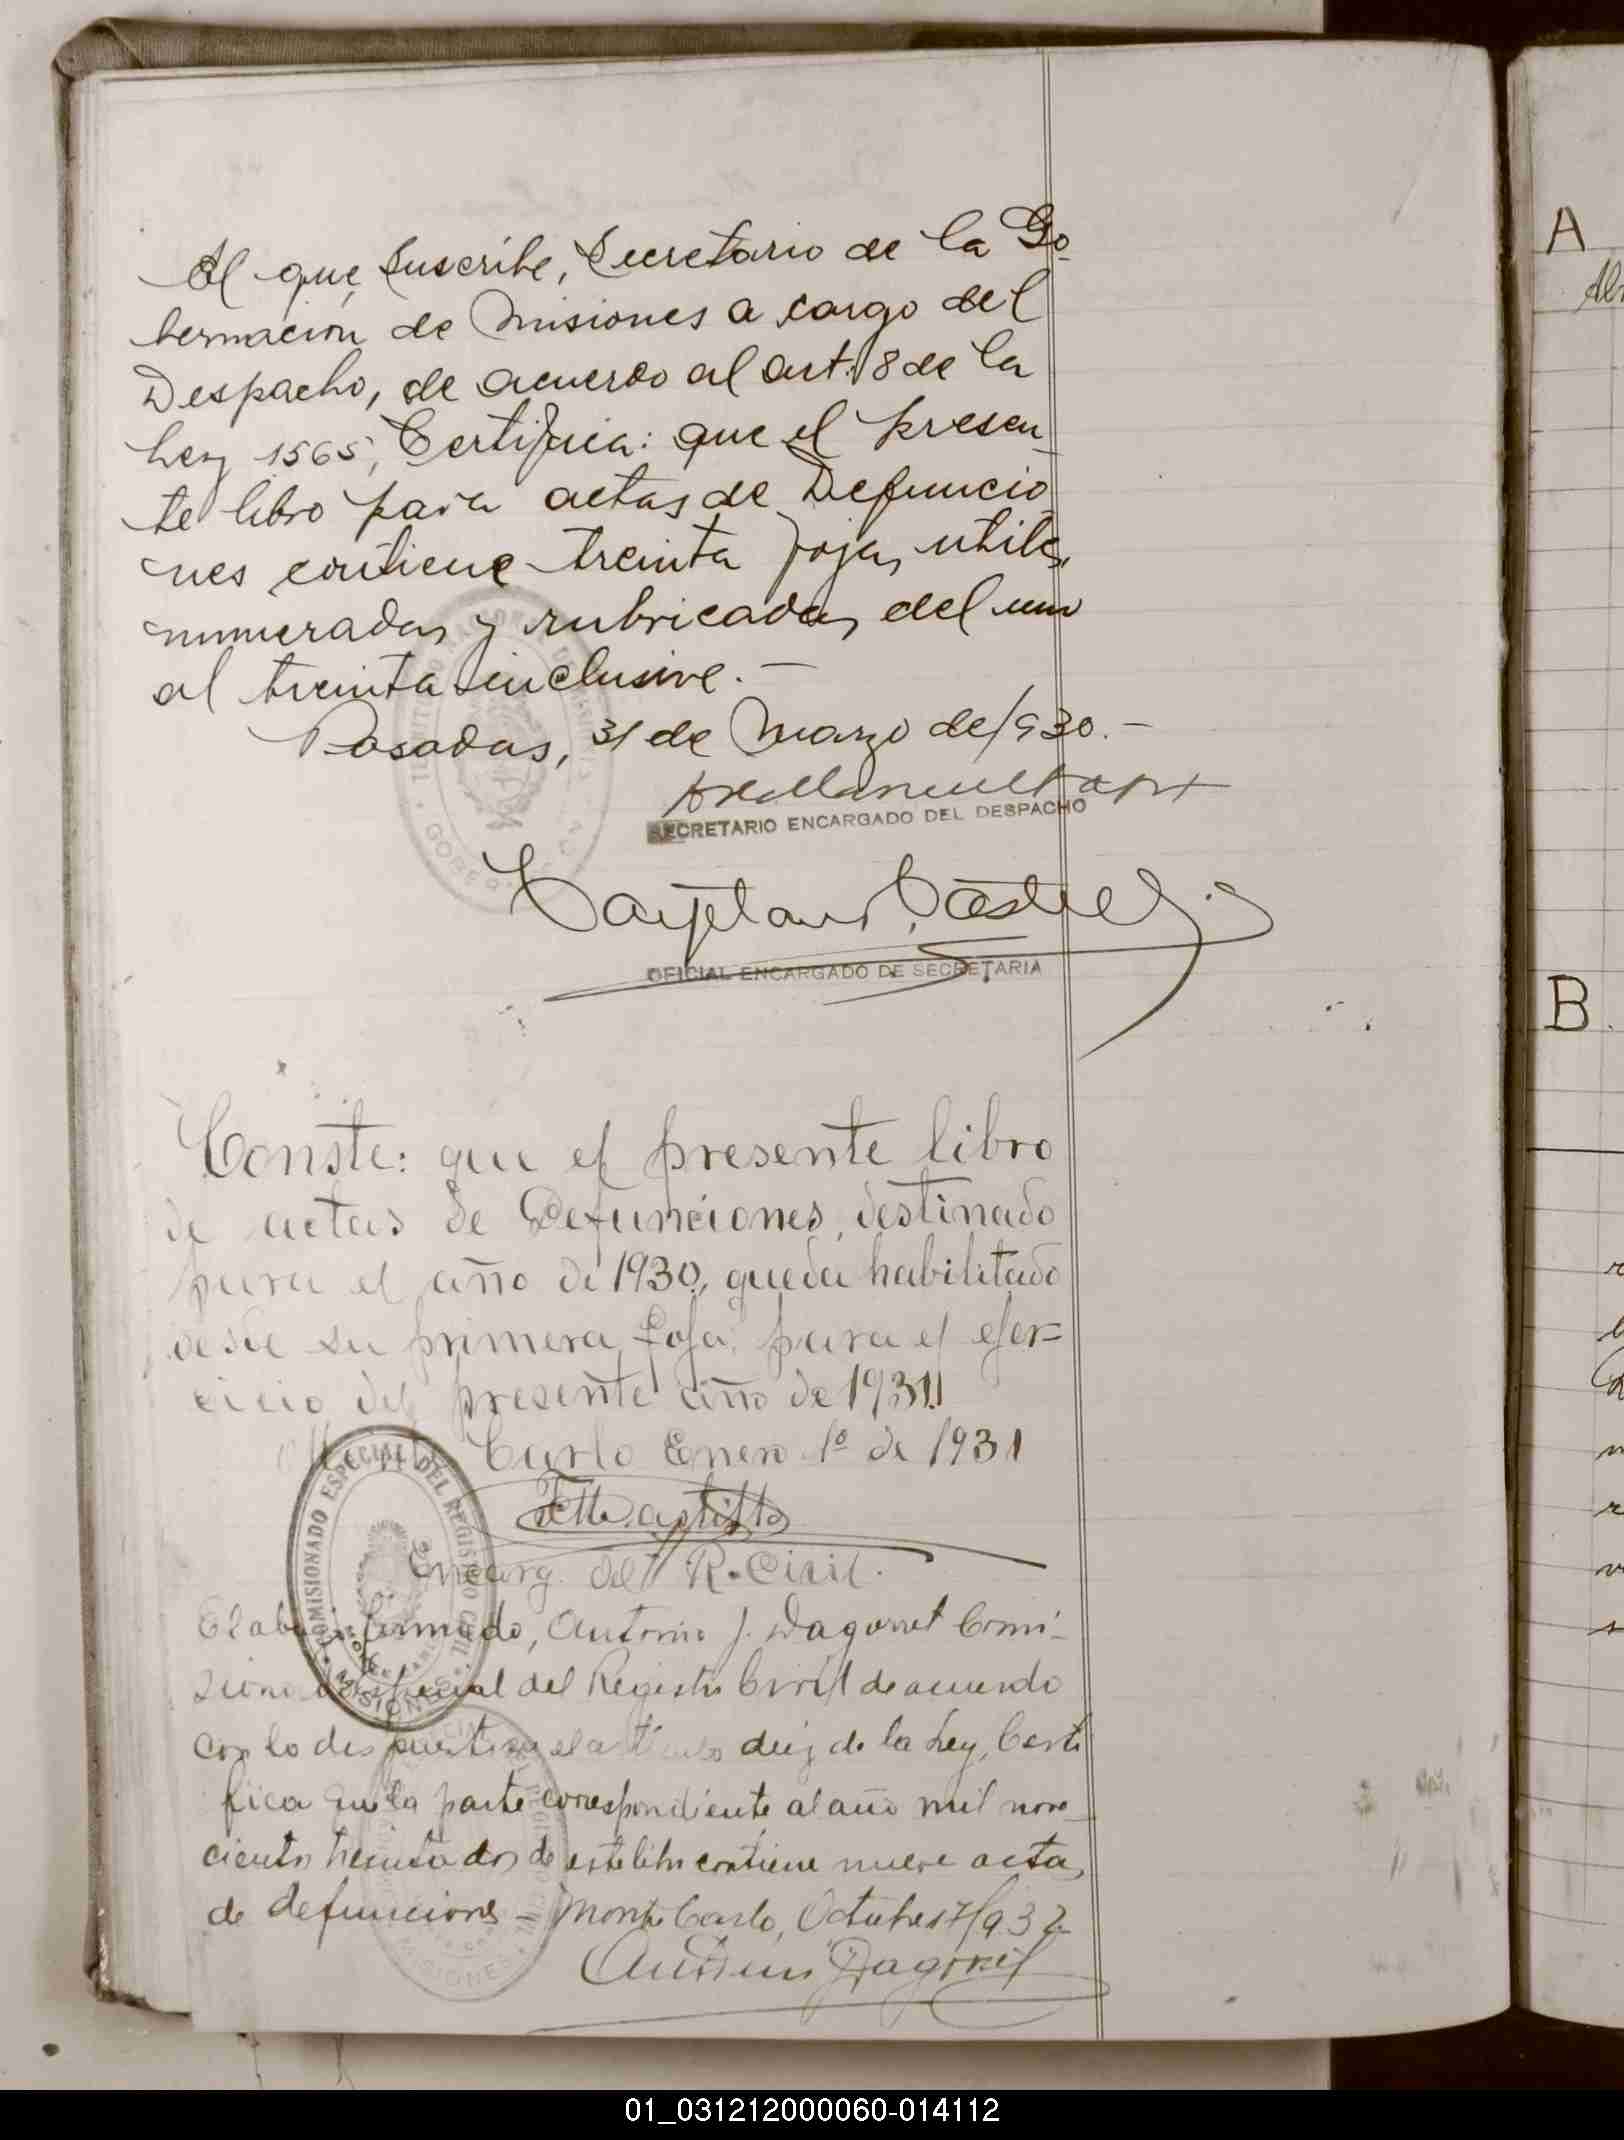 El que suscribe, Secretario de la Go-
bernación de Misiones a cargo del
Despacho, de acuerdo al art. 8 de la
Ley 1565, Certifica: que el presen-
te libro para actas de Defuncio
nes contiene treinta fojas utiles,
numeradas y rubricadas del uno
al treinta inclusive. —
Posadas, 31 de Marzo de 1930. —
SECRETARIO ENCARGADO DEL DESPACHO
OFICIAL ENCARGADO DE SECRETARIA
Conste: que el presente libro
de actas de Defunciones, destinado
para el año de 1930, queda habilitado
desde su primera foja, para el ejer=
cicio del presente año de 1931
Carlo Enero 1º de 1931
Encarg. del R. Civil.
COMISIONADO ESPECIAL DEL REGISTRO CIVIL
MISIONES
El abajo firmado, Antonio J. Dagorret Comi-
sionado especial del Registro Civil de acuerdo
con lo dispuesto en el artículo diez de la Ley, Certi
fica que la parte correspondiente al año mil nove-
cientos treinta dos de este libro contiene nueve actas
de defunciones — Monte Carlo, Octubre 17/932
Antonio Dagorret
A
B
01_031212000060-014112